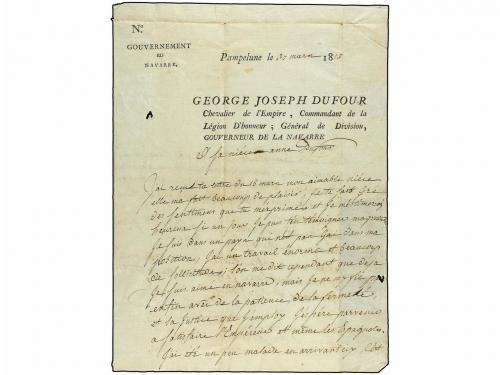 N.º
GOUVERNEMENT
DE
NAVARRE.
Pampelune le 30 mars 18
GEORGE JOSEPH DUFOUR
Chevalier de l'Empire, Commandant de la
Légion D'honneur; Général de Division,
GOUVERNEUR DE LA NAVARRE
A sa niece anne Dufour
J'ai reçu ta lettre du 16 mars mon aimable niéce
elle m'a fait beaucoup de plaisir, je te sais gré
des sentimens que tu m'exprimes et je m'estimerai
heureux si un jour je puis t'en témoigner
je suis dans un pays qui n'est pas dans ma
position, J'ai un travail énorme et beaucoup
de l'on me dit cependant que deja
Je suis aimé en navarre, mais je ne m'y fie pas
enfin avec de la patience, de la fermeté
et la Justice que J'employ J'espère parvenir
a satisfaire l'Empereur et même les Espagnols.
J'ai été un peu malade en arrivant